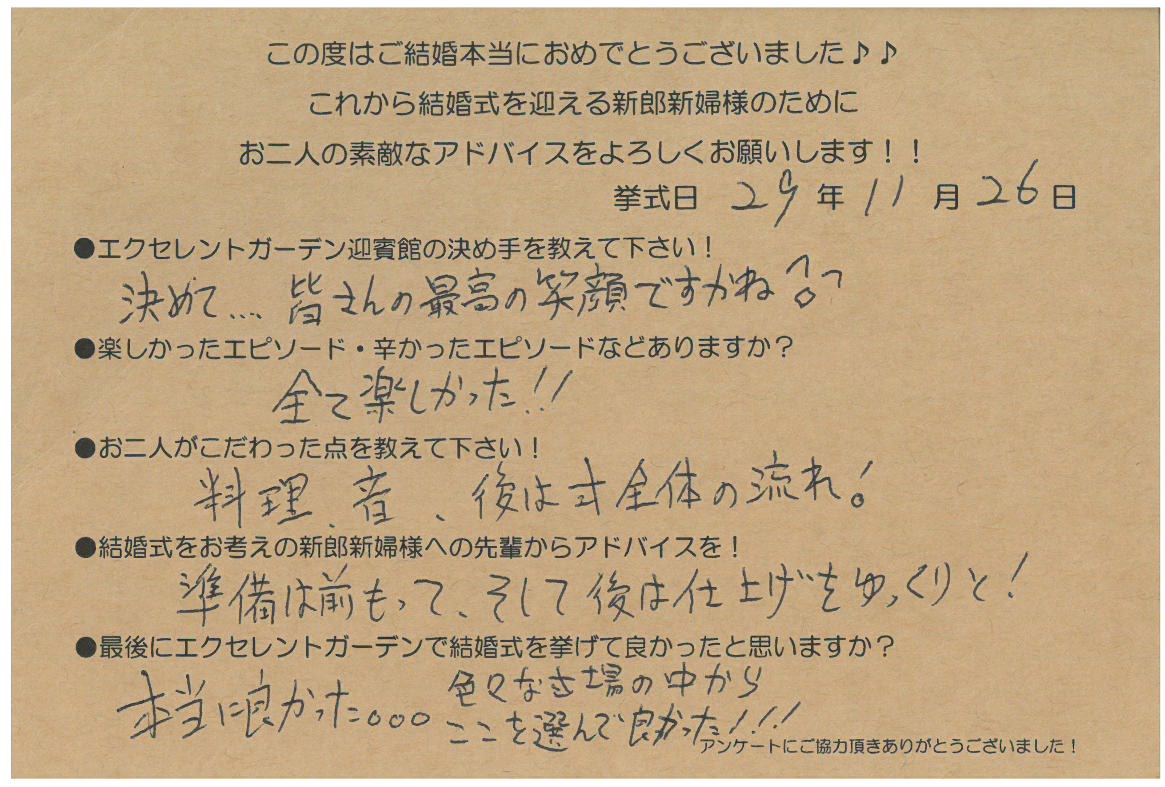 この度はご結婚本当におめでとうございました♪♪
これから結婚式を迎える新郎新婦様のために
お二人の素敵なアドバイスをよろしくお願いします！！
挙式日 29年 11月 26日
●エクセレントガーデン迎賓館の決め手を教えて下さい！
決めて… 皆さんの最高の笑顔ですかね
●楽しかったエピソード・辛かったエピソードなどありますか？
全て楽しかった!!
●お二人がこだわった点を教えて下さい！
料理、音、後は式全体の流れ!
●結婚式をお考えの新郎新婦様への先輩からアドバイスを！
準備は前もって、そして後は仕上げをゆっくりと!
●最後にエクセレントガーデンで結婚式を挙げて良かったと思いますか？
本当に良かった。。。
色々な式場の中から
ここを選んで良かった!!!
アンケートにご協力頂きありがとうございました！